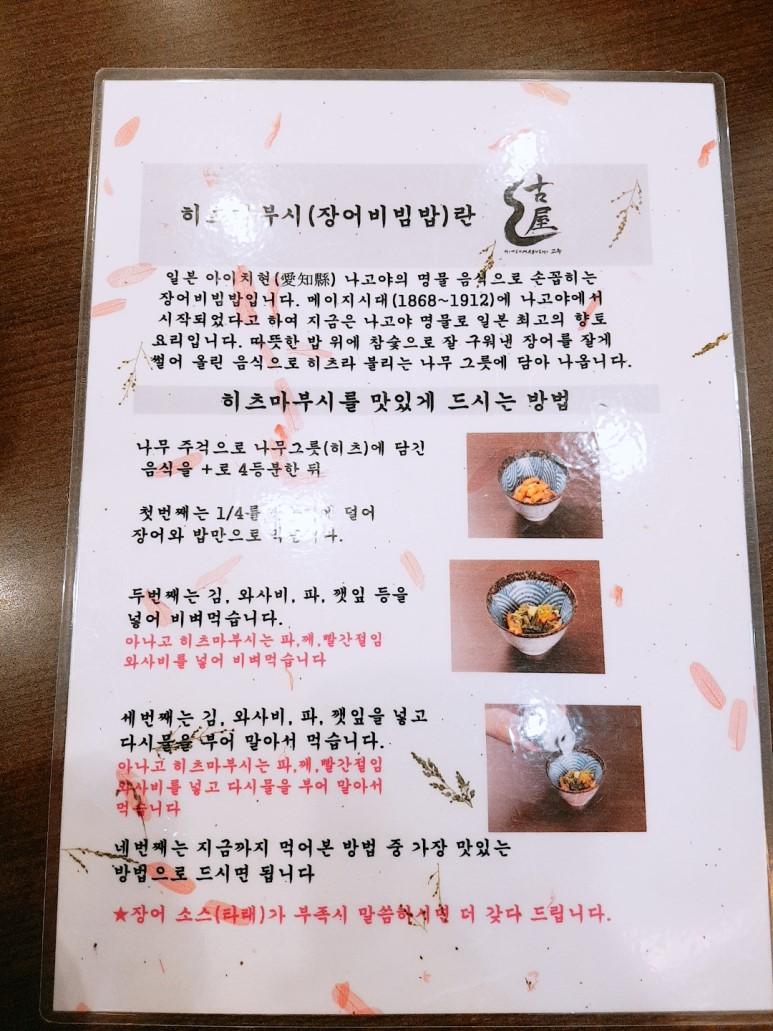 히츠마부시(장어비빔밥)란
古屋
HITSUMABUSHI 고옥
일본 아이치현(愛知縣) 나고야의 명물 음식으로 손꼽히는
장어비빔밥입니다. 메이지시대(1868~1912)에 나고야에서
시작되었다고 하여 지금은 나고야 명물로 일본 최고의 향토
요리입니다. 따뜻한 밥 위에 참숯으로 잘 구워낸 장어를 잘게
썰어 올린 음식으로 히츠라 불리는 나무 그릇에 담아 나옵니다.
히츠마부시를 맛있게 드시는 방법
나무 주걱으로 나무그릇(히츠)에 담긴
음식을 +로 4등분한 뒤
첫번째는 1/4를 덜어
장어와 밥만으로
두번째는 김, 와사비, 파, 깻잎 등을
넣어 비벼먹습니다.
아나고 히츠마부시는 파,깨,빨간절임
와사비를 넣어 비벼먹습니다
세번째는 김, 와사비, 파, 깻잎을 넣고
다시물을 부어 말아서 먹습니다.
아나고 히츠마부시는 파,깨,빨간절임
와사비를 넣고 다시물을 부어 말아서
먹습니다
네번째는 지금까지 먹어본 방법 중 가장 맛있는
방법으로 드시면 됩니다
★장어 소스(타래)가 부족시 말씀하시면 더 갖다 드립니다.